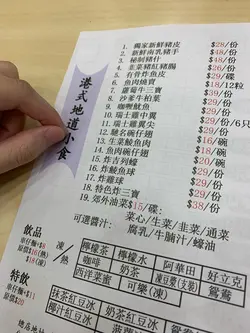 港式地道小食
1. 獨家新鮮豬皮 $28/份
2. 新鮮南乳豬手 $48/份
3. 秘制豬什 $48/份
4. 韮菜豬紅豬腸 $26/份
5. 有骨炸魚皮 $29/碟
6. 魚肉燒賣 $18/12粒
7. 蘿蔔牛三寶 $39/份
8. 沙爹牛柏葉 $29/份
9. 咖喱魷魚 $29/份
10. 瑞士雞中翼
11. 瑞士雞翼尖 /份/6只
12. 馳名碗仔翅 $16/碗
13. 生菜鯪魚肉 $18/碗
14. 魚肉碗仔翅 $20/碗
15. 炸古列蠔 $29/份
16. 炸雞球 $29/份
17. 炸魷魚球 $29/份
18. 特色炸三寶 $39/份
19. 郊外油菜$15/碟:
菜心/生菜/韮菜/通菜
可選醬汁:
腐乳/牛腩汁/蠔油
飲品
車仔麵+$8
車價$16(熱)
$18(凍)
凍 熱
檸檬茶 檸檬水 阿華田 好立克
咖啡 奶茶 鴛鴦
西洋菜蜜 可樂(凍)
特飲
車仔麵+$11
單價$20
抹茶紅豆冰
椰汁紅豆冰